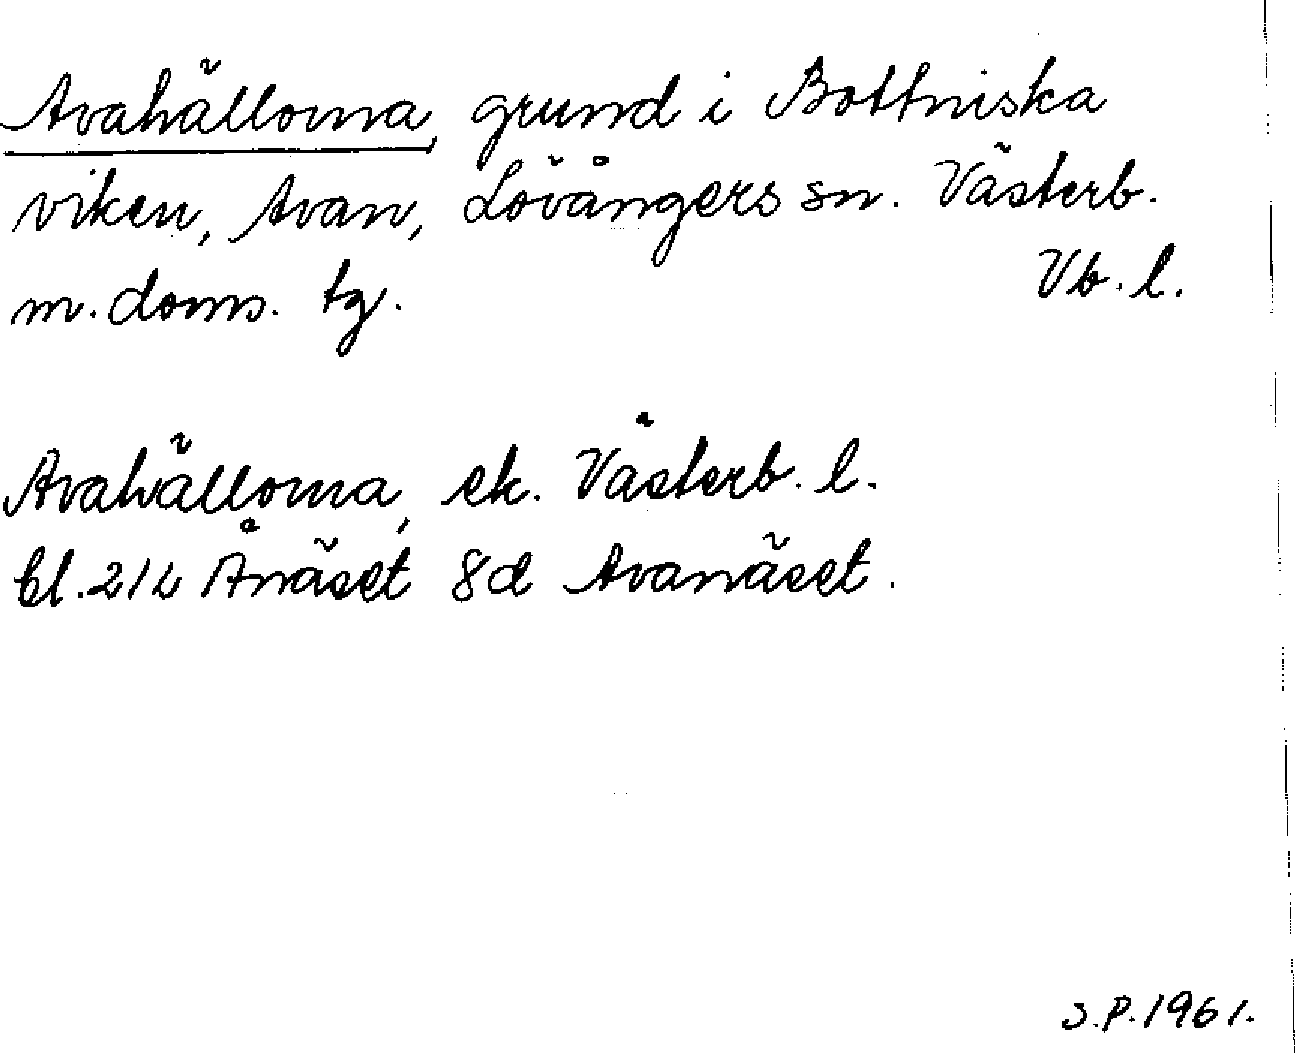 Avahällorna, grund i Bottniska
viken, Avan, Lövångers sn. Västerb.
m. doms. tg. Vb. l.
Avahällorna, ek. Västerb. l.
bl. 214 Ånäset 8d Avanäset.
S.P. 1961.